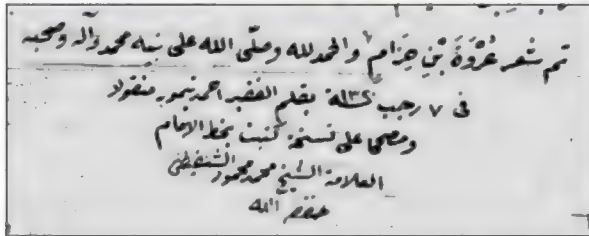 تم شعر عُرْوَةَ بْنِ حِزَام والحمد لله وصلّى الله على نبيه محمد وآله وصحبه
فى ٧ رجب سنة بقلم الفقير احمد تيمور منقولا
ومصححا على نسخة كتبت بخط الإمام
العلامة الشيخ محمد محمود الشنقيطى
الله